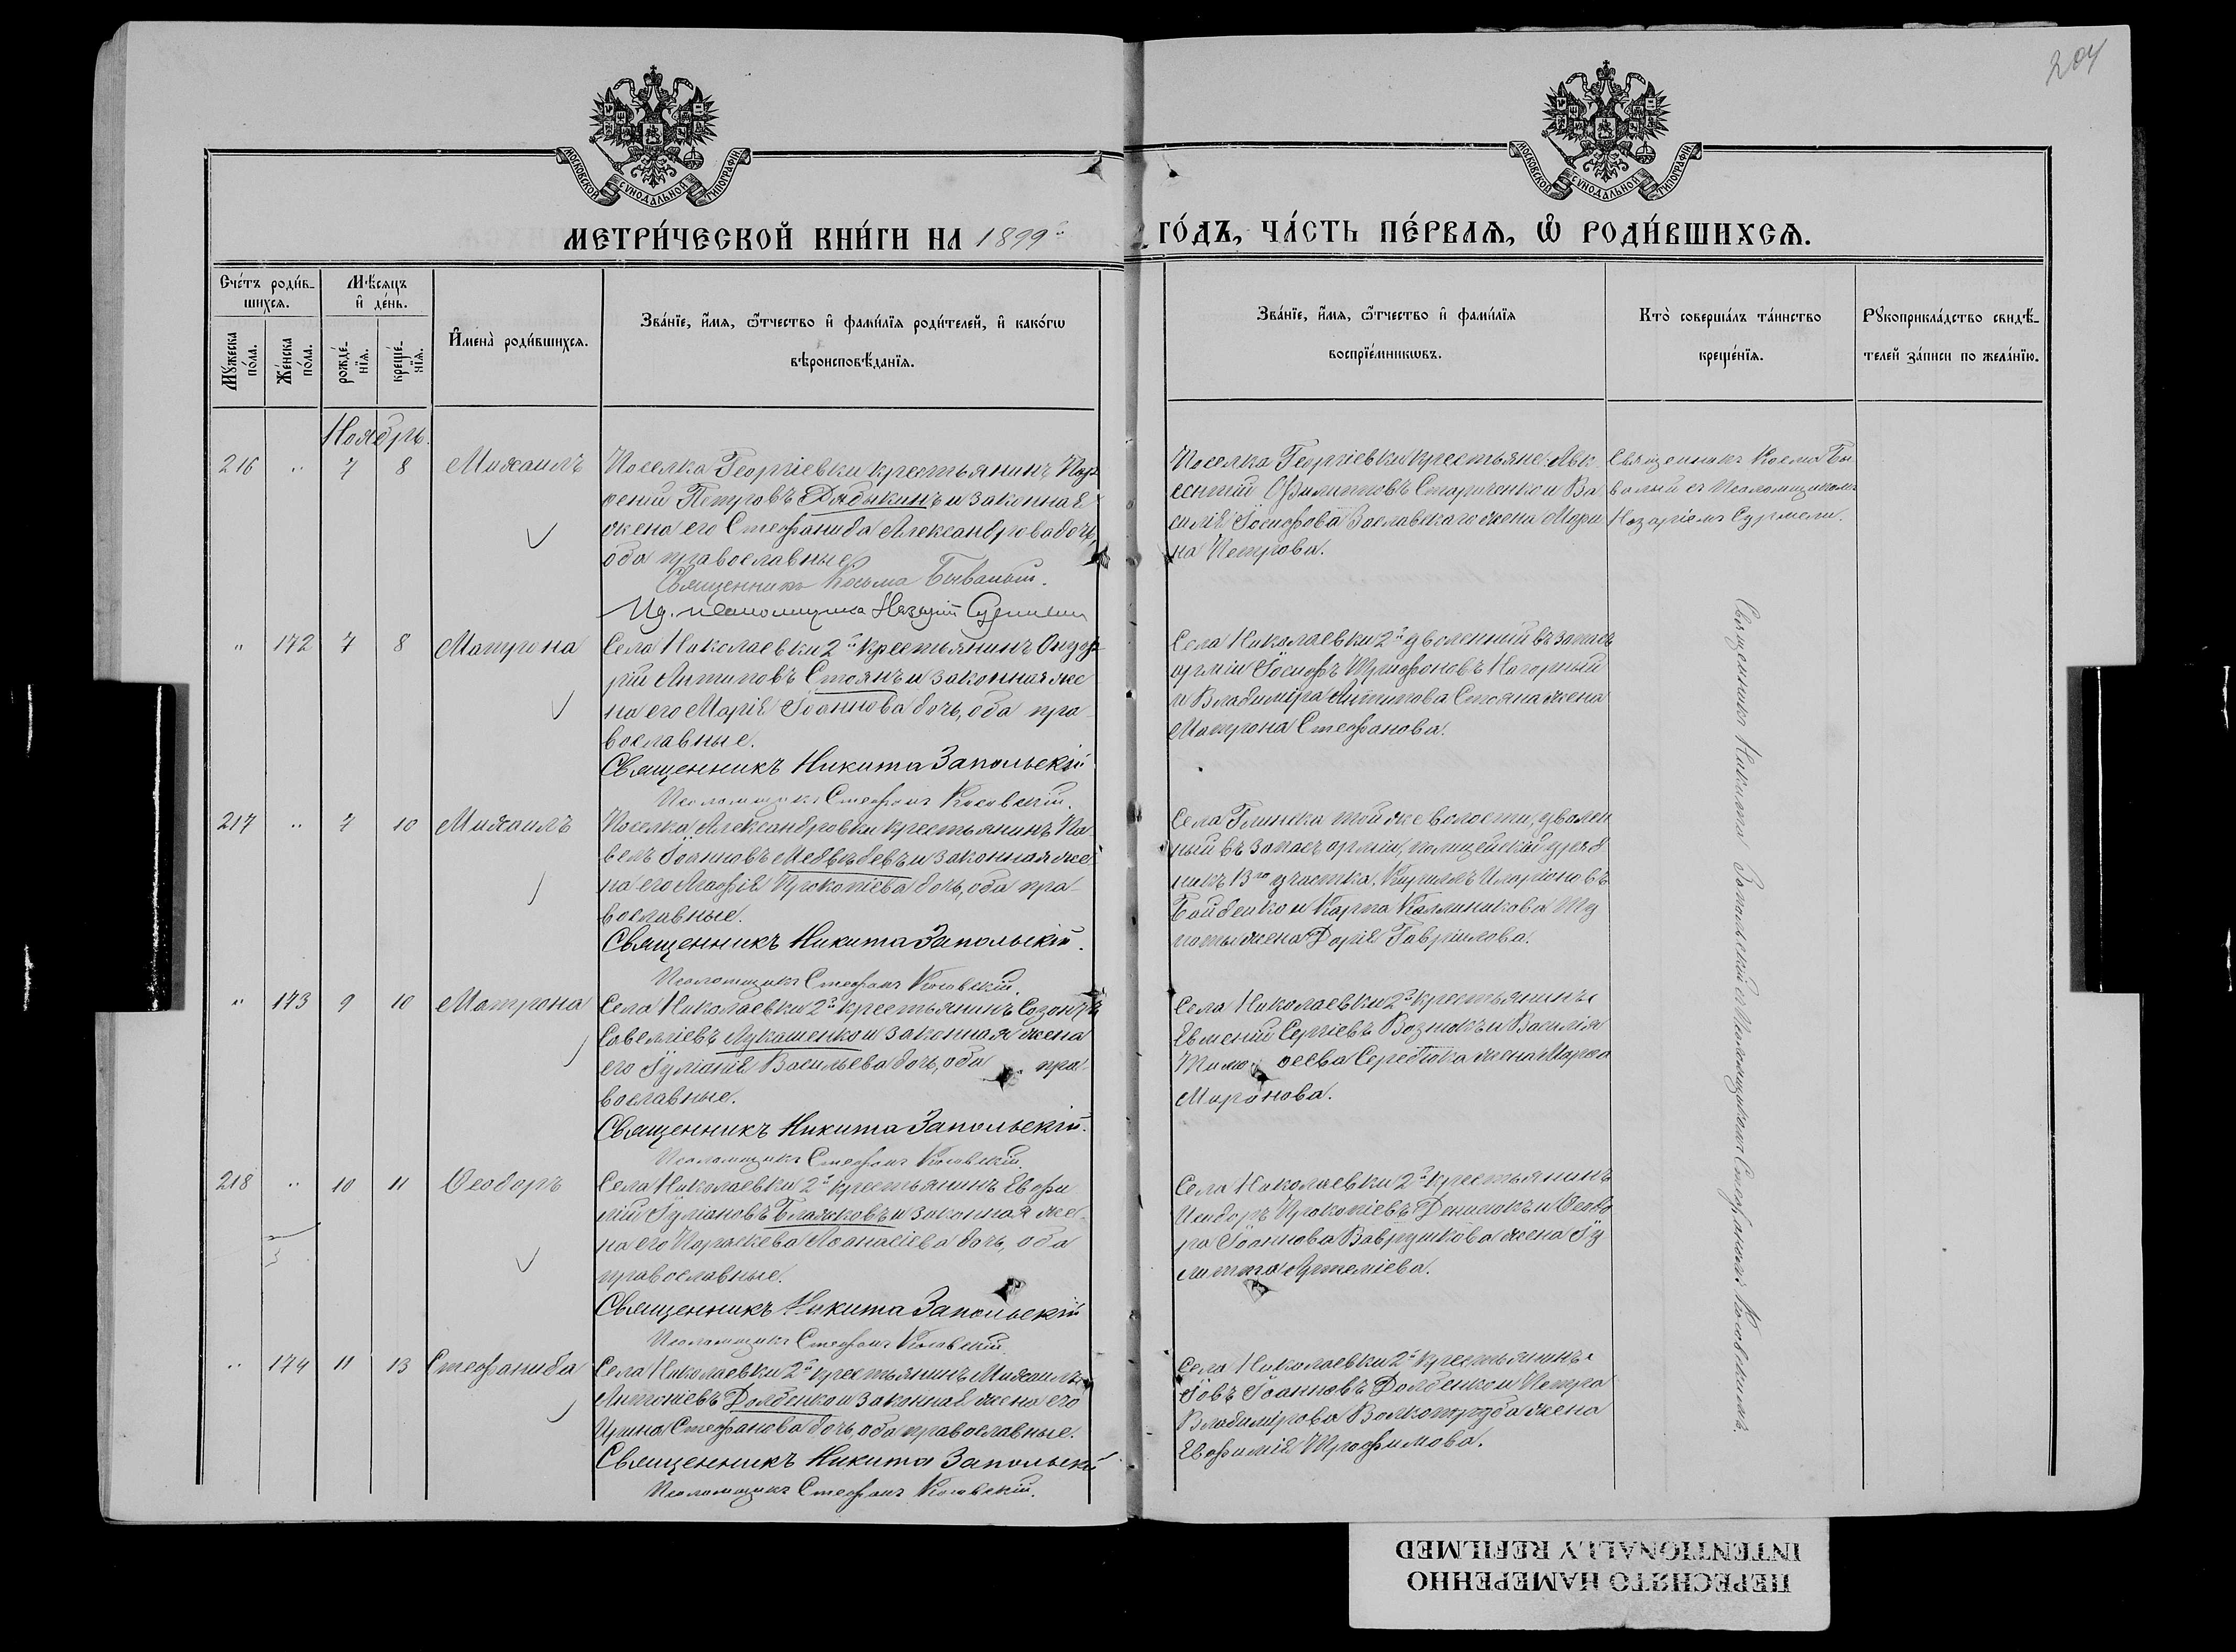 204
МОСКОВСКОЙ СѴНОДАЛЬНОЙ ТИПОГРАФІИ
МОСКОВСКОЙ СѴНОДАЛЬНОЙ ТИПОГРАФІИ
МЕТРИ́ЧЕСКОЙ КНИ́ГИ НА 1899 го́дъ, ча́сть пе́рваѧ, ѽ роди́вшихсѧ.
Сче́тъ роди́вшихсѧ.
Мꙋ́жеска по́ла.
Же́нска по́ла.
Мѣ́сѧцъ и҆ де́нь.
рожде́нїѧ.
креще́нїѧ.
И҆мена̀ роди́вшихсѧ.
Зва́нїе, и҆́мѧ, ѻ҆́тчество и҆ фами́лїѧ роди́телей, и҆ како́гѡ
вѣроисповѣ́данїѧ.
Зва́нїе, и҆́мѧ, ѻ҆́тчество и҆ фами́лїѧ
воспрїе́мникѡвъ.
Кто̀ соверша́лъ та́инство
креще́нїѧ.
Рꙋкоприкла́дство свидѣ́-
телей за́писи по жела́нїю.
Ноябрь.
216 " 7 8 Михаилъ
Поселка Георгіевки крестьянинъ Пор
фений Петровъ Дядыкинъ и законная
жена его Стефанида Александрова дочь,
оба православные
Священникъ Косьма Бывалый.
Ид. псаломщика Назарій
Поселка Георгіевки крестьяне: Авк
сентий Филипповъ Старченко и Ва
силія Іосифова Заславскаго жена Мари
на Петрова.
Священникъ Косма Бы
валый съ Псаломщикомъ
Назаріемъ Сурмели.
" 172 7 8 Матрона
Села Николаевки 2й крестьянинъ Онуф
рій Антиповъ Стоянъ и законная же
на его Марія Іоаннова дочь, оба пра
вославные.
Священникъ Никита Запольскій
Псаломщикъ Стефанъ Косовскій.
Села Николаевки 2й уволенный въ запасъ
арміи Іосифъ Трифоновъ Нагорный
и Владиміра Антипова Стояна жена
Матрона Стефанова.
217 " 7 10 Михаилъ
Поселка Александровки крестьянинъ Па
велъ Іоанновъ Медвѣдевъ и законная же
на его Агафія Прокопіева дочь, оба пра-
вославные.
Священникъ Никита Запольскій.
Псаломщикъ Стефанъ Косовскій.
Села Глинска той же волости, уволен
ный въ запасъ арміи, полицейскій уряд
никъ 13го участка, Кириллъ Иларіоновъ
Бойденко и Карпа Каллиникова
жена Дарія Гавріилова.
" 173 9 10 Матрона
Села Николаевки 2й крестьянинъ Созонтъ
Савеліевъ Лукашенко и законная жена
его Іуліанія Васильева дочь, оба пра-
вославные.
Священникъ Никита Запольскій.
Псаломщикъ Стефанъ Косовскій.
Села Николаевки 2й крестьянинъ
Евмений Сергіевъ Вознюкъ и Василія
Тимо ѳеева Середюка жена Марѳа
Миронова.
218 " 10 11 Ѳеодоръ
Села Николаевки 2й крестьянинъ Евфи
мій Іуліановъ Блажковъ и законная же-
на его Параскева Аѳанасіева дочь, оба
православные.
Священникъ Никита Запольскій
Псаломщикъ Стефанъ Косовскій.
Села Николаевки 2й крестьянинъ
Исидоръ Прокопіевъ Денисюкъ и Ѳеодо
ра Іоаннова Ваврушкова жена Іу
литта Артеміева.
" 174 11 13 Стефанида
Села Николаевки 2й крестьянинъ Михаилъ
Антоніевъ Долбенко и законная жена его
Ирина Стефанова дочь, оба православные.
Священникъ Никита Запольскій
Псаломщикъ Стефанъ Косовскій.
Села Николаевки 2й крестьянинъ
Іовъ Іоанновъ Долбенко и Петра
Владимірова Волкотруба жена
Евфимія Трофимова.
Священникъ Никита Запольскій съ Псаломщикомъ Стефаномъ Косовскимъ.
ПЕРЕСНЯТО НАМЕРЕННО
INTENTIONALLY REFILMED